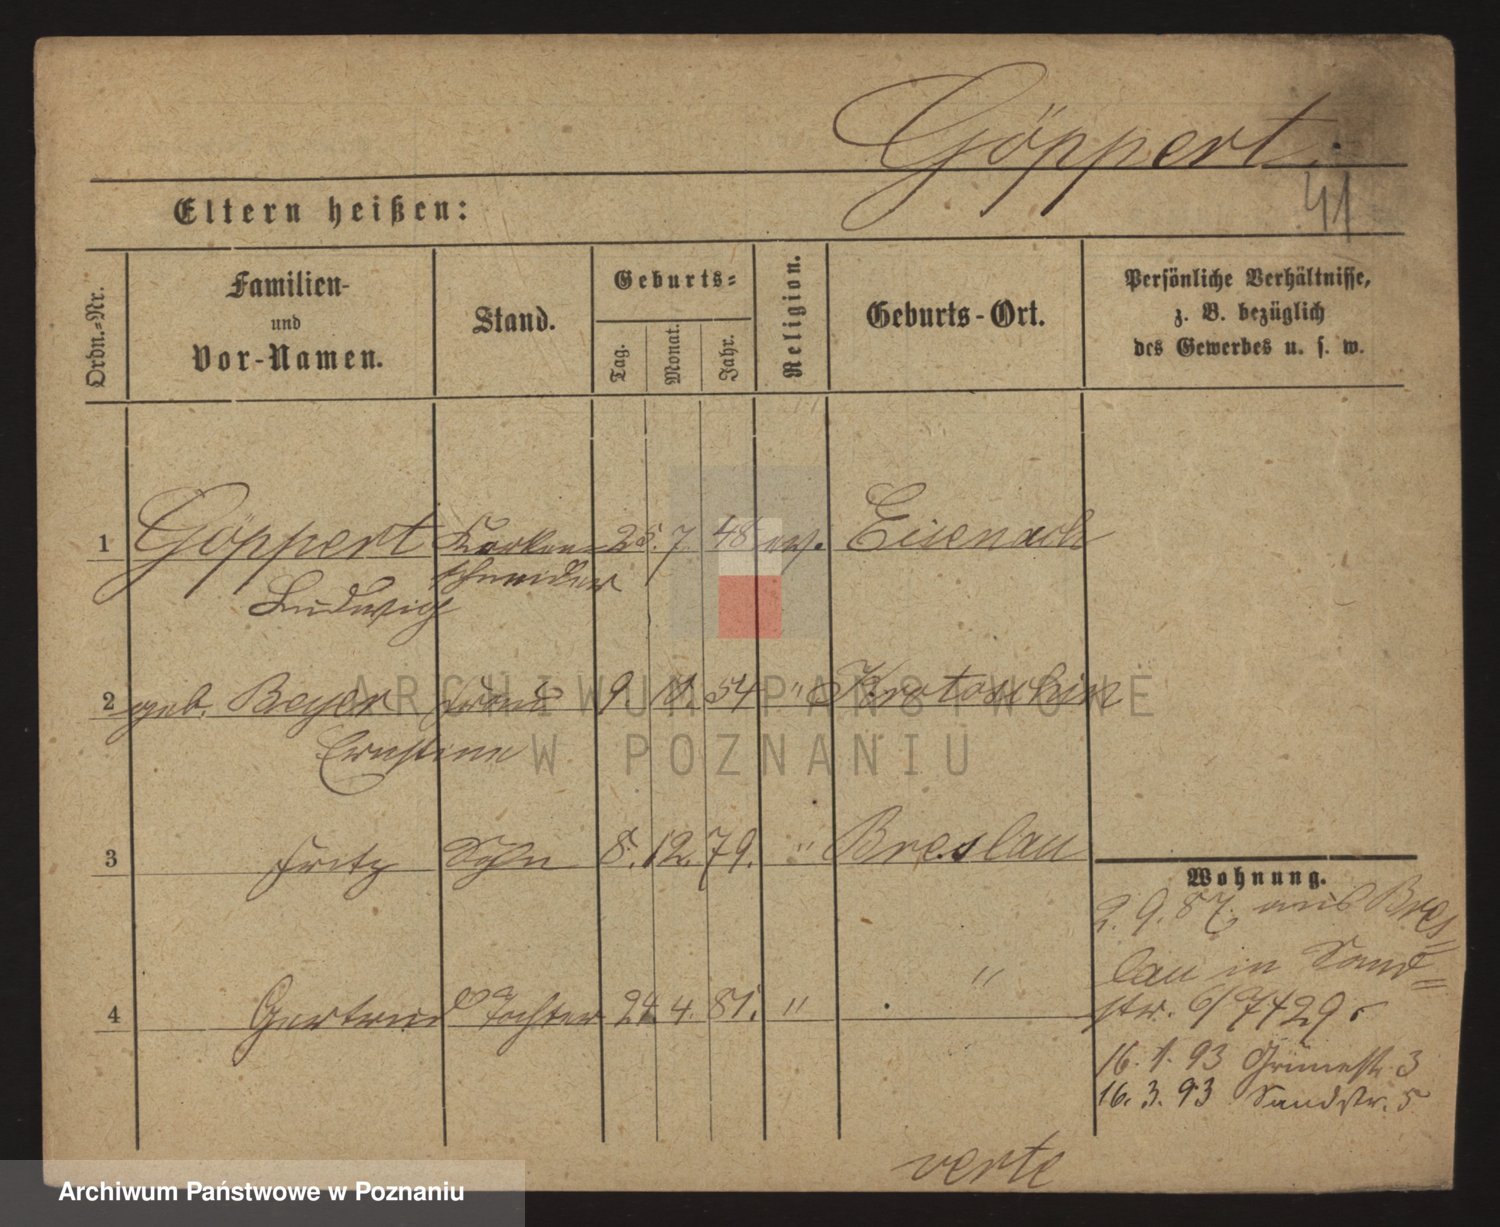 Göppert.
41
Eltern heißen:
Ordn.-Nr.
Familien-
und
Vor-Namen.
Stand.
Geburts-
Tag.
Monat.
Jahr.
Religion.
Geburts-Ort.
Persönliche Verhältnisse,
z. B. bezüglich
des Gewerbes u. s. w.
1 Göppert Korken- 25. 7. 48 ev. Eisenach
schneider
Ludwig
2 geb. Beyer Frau 9. 11. 54 " Krotoschin
Ernstine
3 Fritz Sohn 8. 12. 79. " Breslau
4 Gertrud Tochter 24. 4. 81. " "
Wohnung.
2. 9. 87. aus Bres=
lau in Sand=
str. 6/7429.
16. 1. 93 Grünestr. 3
16. 3. 93 Sandstr. 5
verte
ARCHIWUM PAŃSTWOWE
W POZNANIU
Archiwum Państwowe w Poznaniu